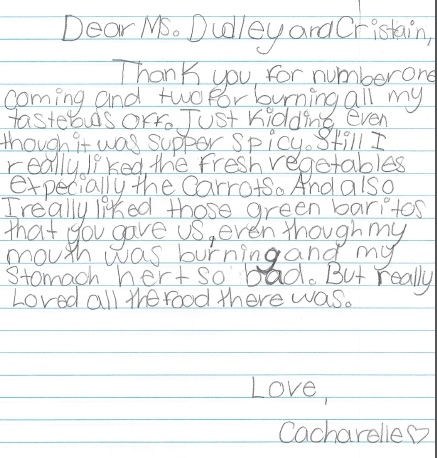 Dear Ms. Dudley and Cristain,
Thank you for number one
coming and two for burning all my
tastebuds off. Just kidding even
though it was supper spicy. Still I
really liked the fresh vegetables
expecially the carrots. And also
I really liked those green baritos
that you gave us, even though my
mouth was burning and my
Stomach hert so bad. But really
Loved all the food there was.
Love,
Cacharelle♡